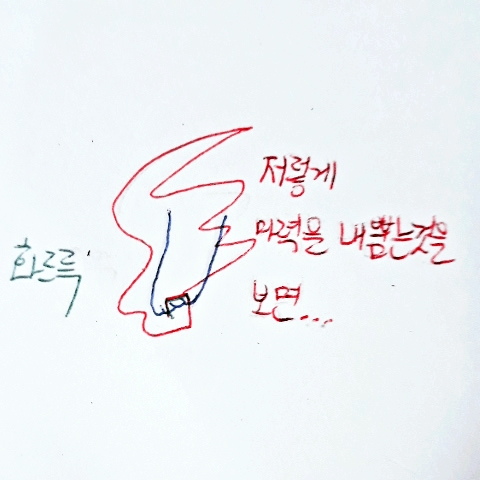 화르륵
저렇게
마력을 내뿜는것을
보면...